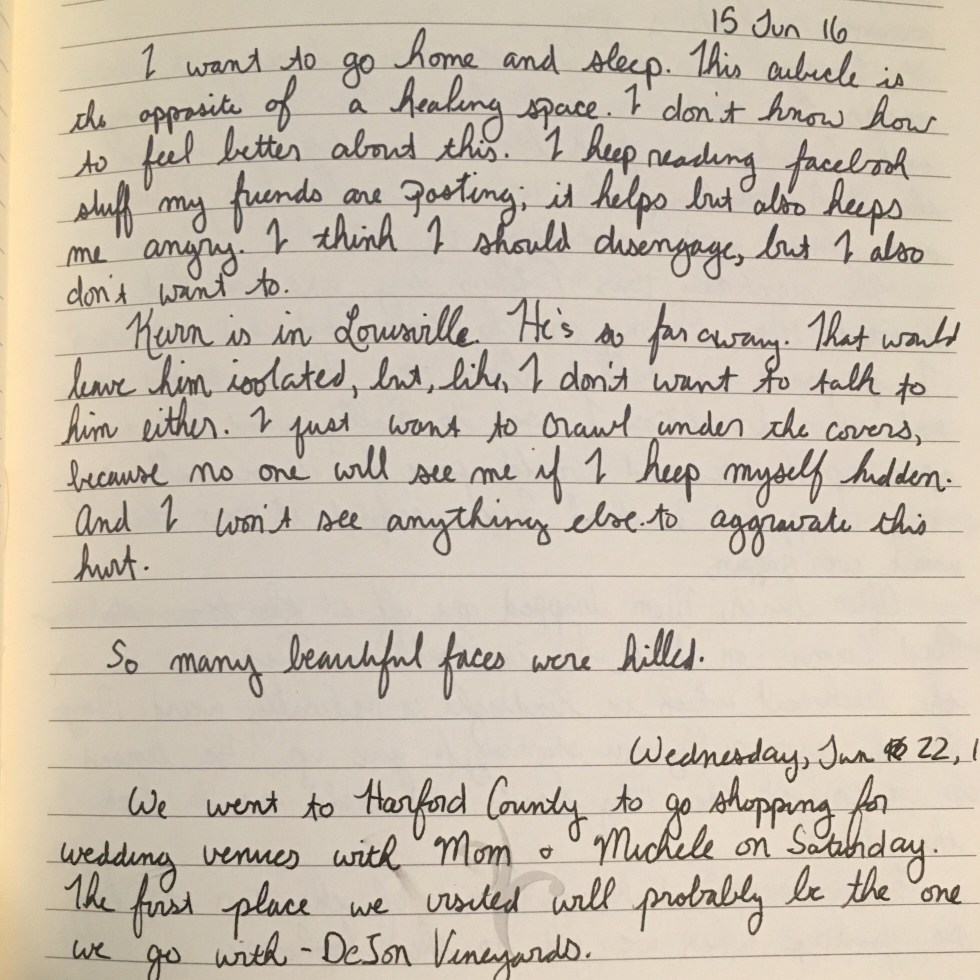 15 Jun 16
I want to go home and sleep. This cubicle is
the opposite of a healing space. I don't know how
to feel better about this. I keep reading facebook
stuff my friends are posting; it helps but also keeps
me angry. I think I should disengage, but I also
don't want to.
Kevin is in Louisville. He's so far away. That would
leave him isolated, but, like, I don't want to talk to
him either. I just want to crawl under the covers,
because no one will see me if I keep myself hidden.
And I won't see anything else to aggravate this
hurt.
So many beautiful faces were killed.
Wednesday, Jun 22, 1
We went to Harford County to go shopping for
wedding venues with Mom & Michele on Saturday.
The first place we visited will probably be the one
we go with - DeJon Vineyards.